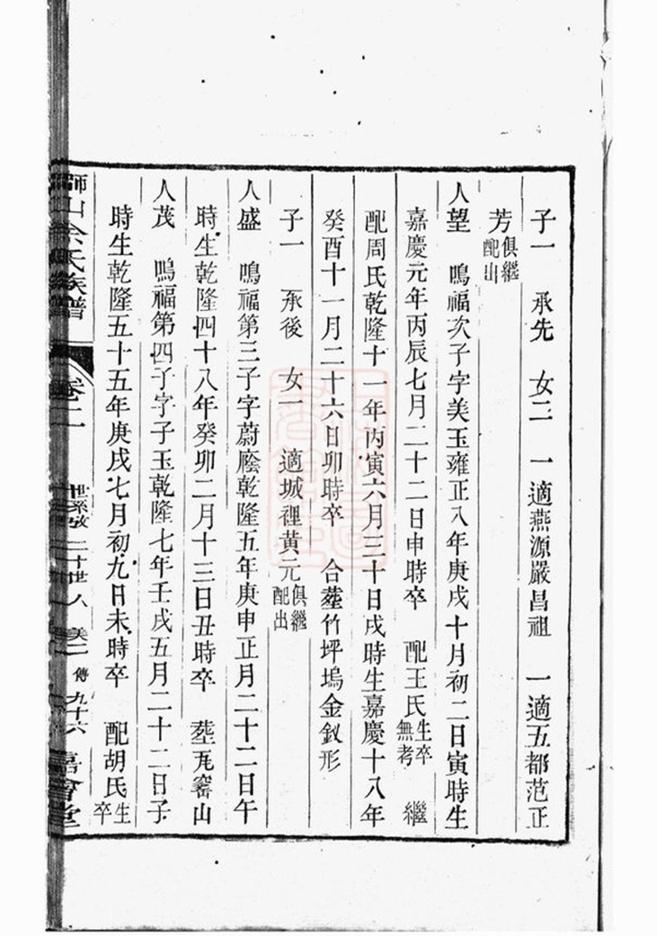 子一　承先　女二　一適燕源嚴昌祖　一適五都范正
芳俱繼配出
人望　鳴福次子字美玉雍正八年庚戌十月初二日寅時生
嘉慶元年丙辰七月二十二日申時卒　配王氏生卒無考　繼
配周氏乾隆十一年丙寅六月三十日戌時生嘉慶十八年
癸酉十一月二十六日卯時卒　合塟竹坪塢金釵形
子一　承後　女一　適城裡黃元俱繼配出
人盛　鳴福第三子字蔚廕乾隆五年庚申正月二十二日午
時生乾隆四十八年癸卯二月十三日丑時卒　塟瓦窰山
人茂　鳴福第四子字子玉乾隆七年壬戌五月二十二日子
時生乾隆五十五年庚戌七月初九日未時卒　配胡氏生卒
山余氏族譜　卷二　世系攷　二十世　人　傳　九十六　嘉會堂